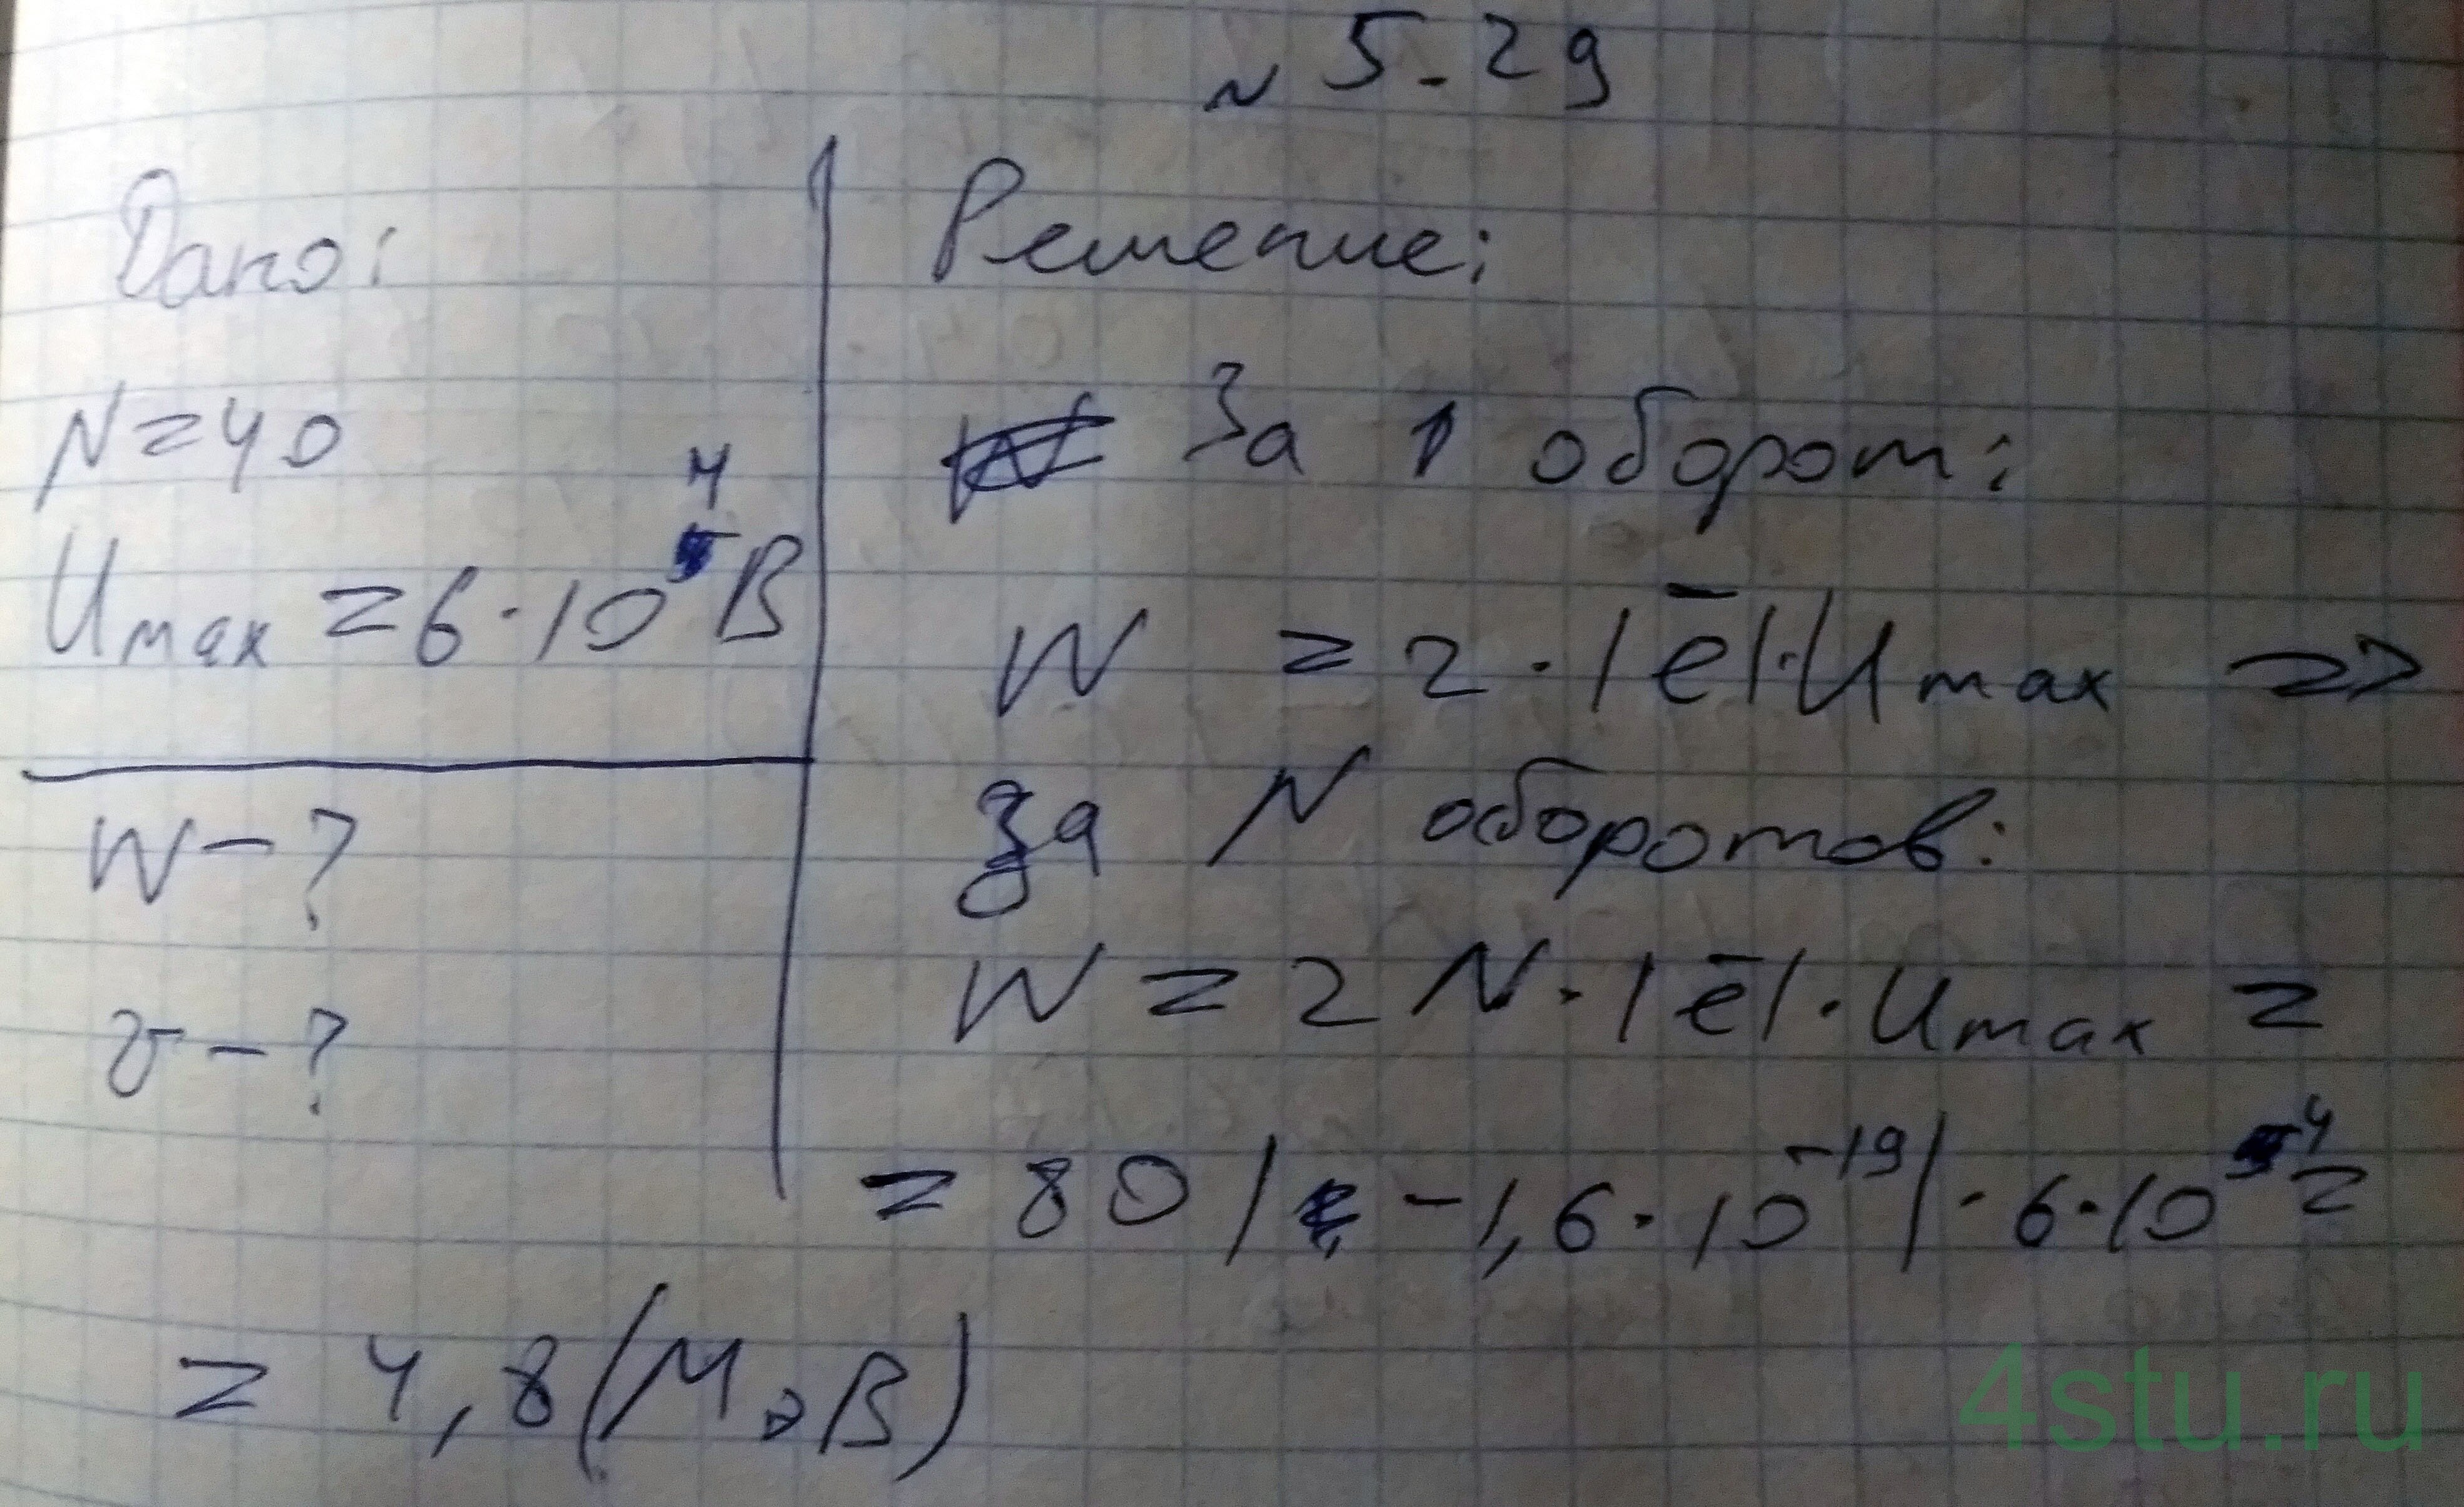 № 5-29
Дано:
N=40
Umax = 6·10⁴ В
W-?
v-?
Решение:
За 1 оборот:
W = 2·|ē|·Umax =>
За N оборотов:
W = 2N·|ē|·Umax =
= 80 |-1,6·10⁻¹⁹|·6·10⁴ =
= 4,8 (МэВ)
4stu.ru